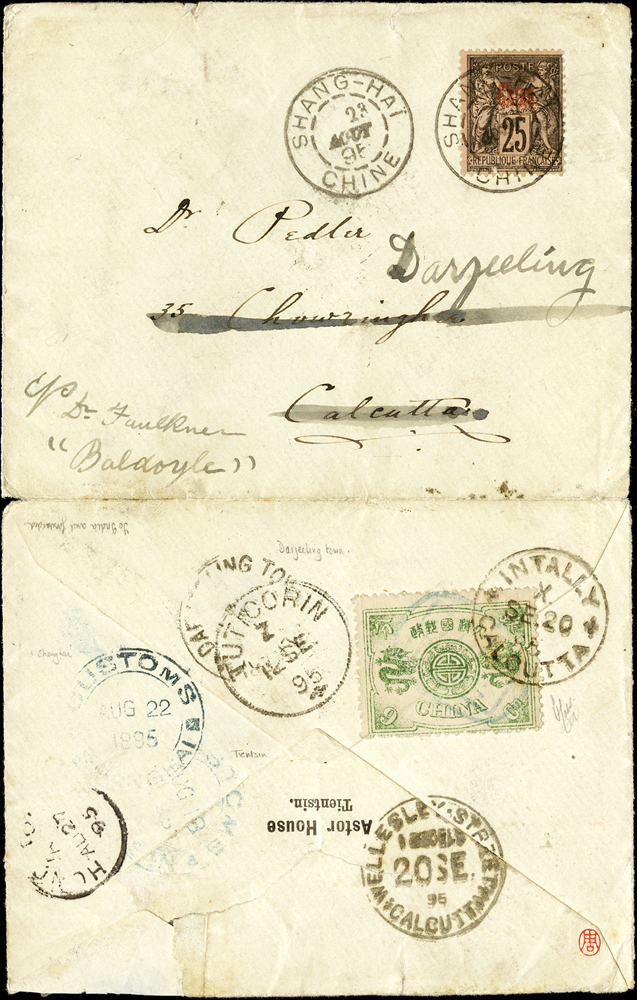 POSTE
Chine
25
REPUBLIQUE FRANÇAISE
SHANG-HAÏ
23
AOUT
95
CHINE
SHANG
CHINE
Dr. Pedler
Darjeeling
35 Chowringhee
Calcutta
c/o Dr Faulkner
"Baldoyle"
To India and forwarded
Darjeeling town.
TING TO
TUTICORIN
95
INTALLY
SE.20
CALCUTTA
郵國
CHINA
Shanghai
CUSTOMS
AUG 22
1895
Tientsin
Astor House
Tientsin.
WELLESLEY STREET
20 SE.
95
CALCUTTA
AU 27
95